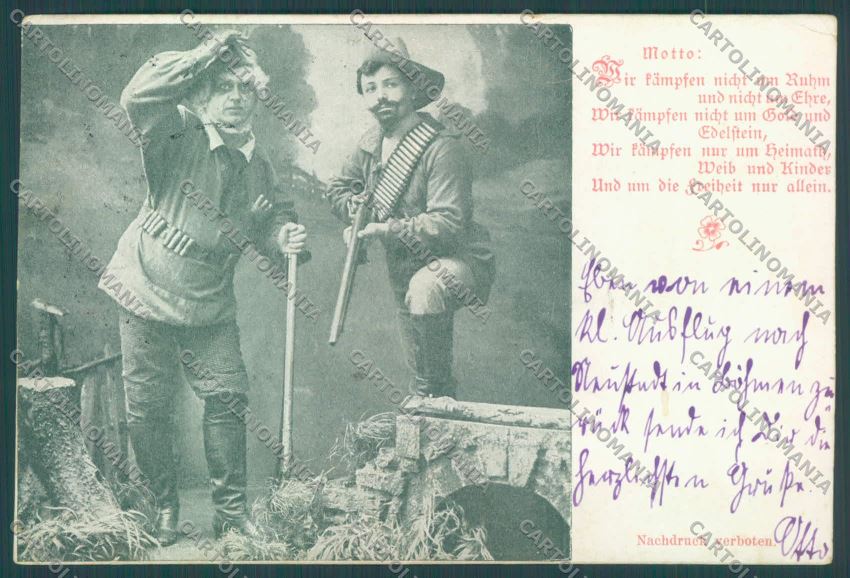 Motto:
Wir kämpfen nicht um Ruhm
und nicht um Ehre,
Wir kämpfen nicht um Gold und
Edelstein,
Wir kämpfen nur um Heimath,
Weib und Kinder
Und um die Freiheit nur allein.
Eben von einem
kl. Ausflug nach
Neustadt in Böhmen zu
rück sende ich Dir die
herzlichsten Grüße.
Otto
Nachdruck verboten.
CARTOLINOMANIA